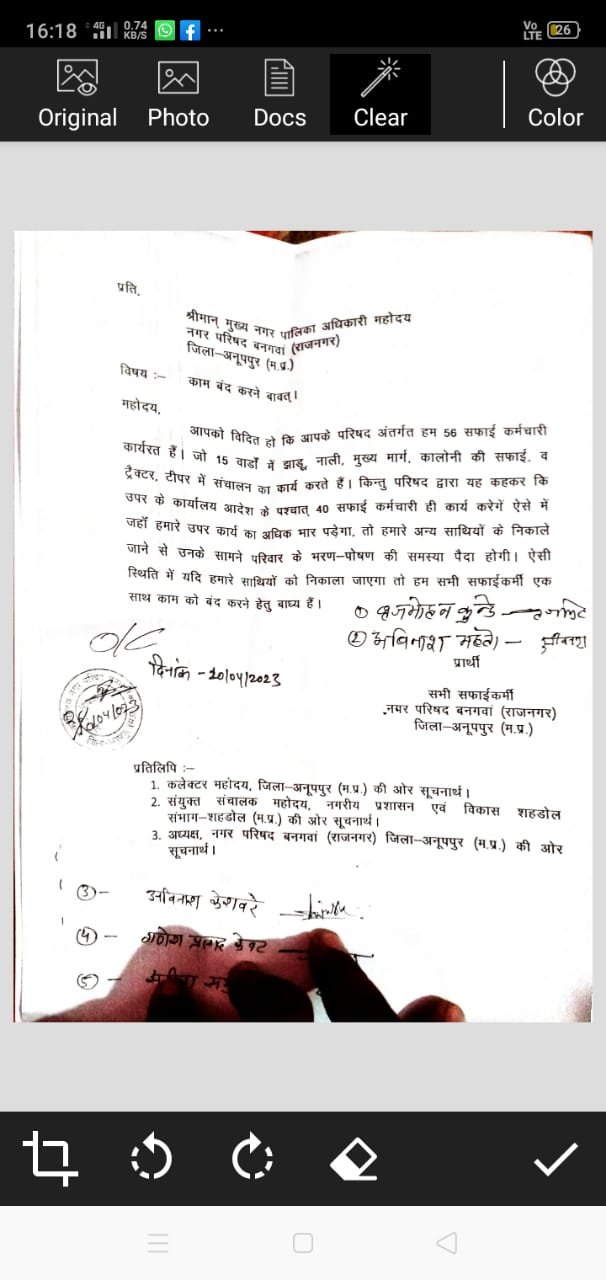 16:18 4G 0.74 KB/S ... Vo LTE 26
Original Photo Docs Clear Color
प्रति,
श्रीमान् मुख्य नगर पालिका अधिकारी महोदय
नगर परिषद बनगवां (राजनगर)
जिला–अनूपपुर (म.प्र.)
विषय :– काम बंद करने बावत्।
महोदय,
आपको विदित हो कि आपके परिषद अंतर्गत हम 56 सफाई कर्मचारी
कार्यरत हैं। जो 15 वार्डों में झाडू, नाली, मुख्य मार्ग, कालोनी की सफाई, व
ट्रैक्टर, टीपर में संचालन का कार्य करते हैं। किन्तु परिषद द्वारा यह कहकर कि
उपर के कार्यालय आदेश के पश्चात् 40 सफाई कर्मचारी ही कार्य करेगें ऐसे में
जहाँ हमारे उपर कार्य का अधिक भार पड़ेगा, तो हमारे अन्य साथियों के निकाले
जाने से उनके सामने परिवार के भरण–पोषण की समस्या पैदा होगी। ऐसी
स्थिति में यदि हमारे साथियों को निकाला जाएगा तो हम सभी सफाईकर्मी एक
साथ काम को बंद करने हेतु बाध्य हैं।
① बृजमोहन
② अविनाश महतो –
O/C
दिनांक - 20/04/2023
प्रार्थी
सभी सफाईकर्मी
नगर परिषद बनगवां (राजनगर)
जिला–अनूपपुर (म.प्र.)
प्रतिलिपि :–
1. कलेक्टर महोदय, जिला–अनूपपुर (म.प्र.) की ओर सूचनार्थ।
2. संयुक्त संचालक महोदय, नगरीय प्रशासन एवं विकास शहडोल
संभाग–शहडोल (म.प्र.) की ओर सूचनार्थ।
3. अध्यक्ष, नगर परिषद बनगवां (राजनगर) जिला–अनूपपुर (म.प्र.) की ओर
सूचनार्थ।
③ – अविनाश
④ – गणेश प्रसाद केवट
⑤ –